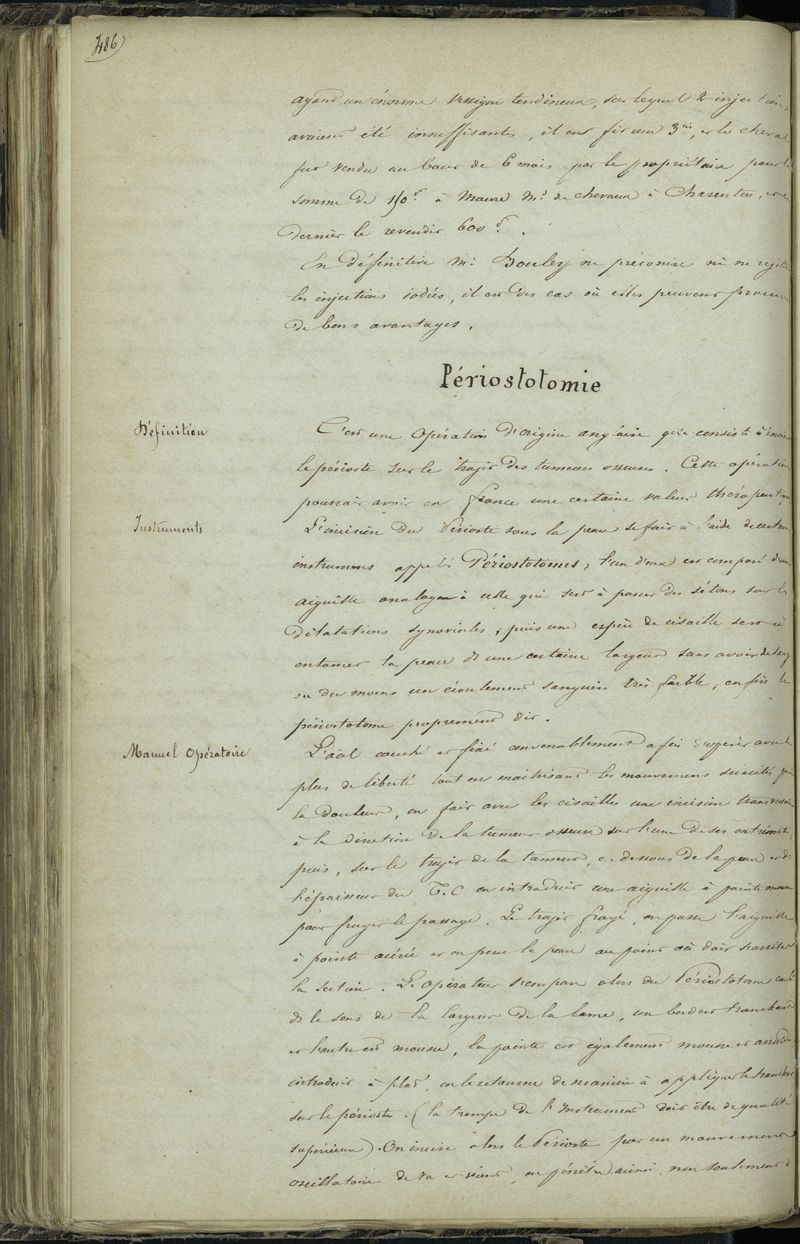 486
ayant un énorme vessigon tendineux, sur lequel 2 injections
avaient été insuffisantes, il en fit une 3me, et le cheval
fut vendu au bout de 6 mois par le propriétaire pour la
somme de 150f à Maure Md de chevaux à Charenton, et ce
dernier le revendit 600f.
En définitive Mr Bouley ne préconise ni ne rejette
les injections iodées, il est des cas où elles peuvent procurer
de bons avantages.
Périostotomie
Définition
C'est une opération d'origine anglaise qui consiste à inciser
le périoste sur le trajet des tumeurs osseuses. Cette opération
pourrait avoir en France une certaine valeur thérapeutique
Instruments
L'incision du Périoste sous la peau se fait à l'aide de certains
instrumens appelés Périostotomes; l'un d'eux est composé d'une
aiguille analogue à celle qui sert à passer des sétons sur les
dilatations synoviales; puis une espèce de cisaille sert à
entamer la peau d'une certaine largeur sans avoir de sang
ou du moins un écoulement sanguin très faible, enfin le
périostotome proprement dit.
Manuel Opératoire
L'aal couché et fixé convenablement afin d'opérer avec le
plus de liberté tout en maitrisant les mouvemens suscités par
la douleur, on fait avec les cisailles une incision transversale
à la direction de la tumeur osseuse sur l'une de ses extrémités
puis, sur le trajet de la tumeur, au dessous de la peau et ds
l'épaisseur du T.C on introduit une aiguille à pointe mousse
pour frayer le passage. Le trajet frayé, on passe l'aiguille
à pointe acérée et on perce la peau au point où doit s'arrêter
la section. L'opérateur s'empare alors du Périostotome courbé
ds le sens de la largeur de la lame, un bord est tranchant
et l'autre est mousse, la pointe est également mousse et arrondie,
introduit à plat, on le retourne de manière à appliquer le tranchant
sur le périoste. (la trempe de l'Instrument doit être de qualité
supérieure). On incise alors le Périoste par un mouvement
oscillatoire de va et vient, on pénètre ainsi, non seulement d